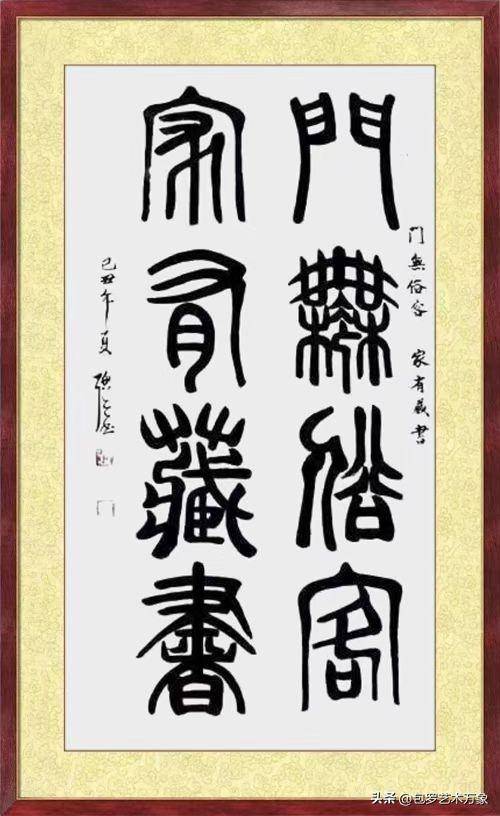 門無俗客
家有藏書
门無俗客 家有藏書
己丑年夏
头条 @包罗艺术万象